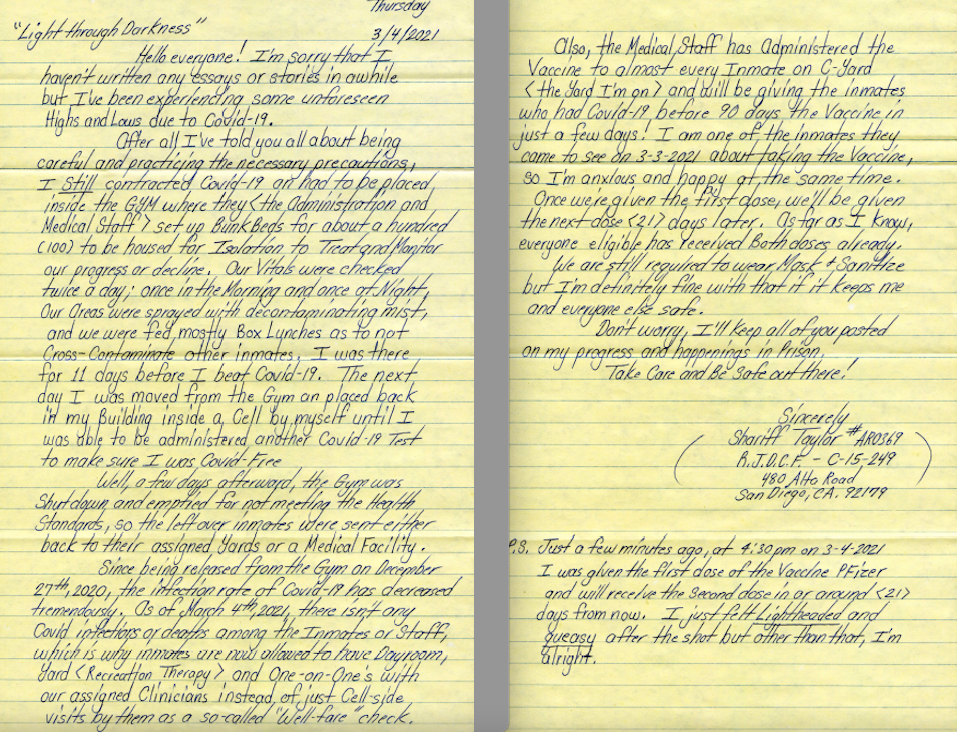 Thursday
"Light through Darkness"
3/4/2021
Hello everyone! I'm sorry that I
haven't written any essays or stories in awhile
but I've been experiencing some unforeseen
Highs and Lows due to Covid-19.
After all I've told you all about being
careful and practicing the necessary precautions,
I Still contracted Covid-19 an had to be placed
inside the GYM where they <the Administration and
Medical Staff> set up Bunk Beds for about a hundred
(100) to be housed for Isolation to Treat and Monitor
our progress or decline. Our Vitals were checked
twice a day; once in the Morning and once at Night,
Our Areas were sprayed with decontaminating mist,
and we were fed mostly Box Lynches as to not
Cross-Contaminate other inmates. I was there
for 11 days before I beat Covid-19. The next
day I was moved from the Gym an placed back
in my Building inside a Cell by myself until I
was able to be administered another Covid-19 Test
to make sure I was Covid-Free
Well, a few days afterward, the Gym was
Shutdown and emptied for not meeting the Health
Standards, so the left over inmates were sent either
back to their assigned Yards or a Medical Facility.
Since being released from the Gym on December
27th, 2020, the infection rate of Covid-19 has decreased
tremendously. As of March 4th, 2021, there isn't any
Covid infections or deaths among the Inmates or Staff,
which is why inmates are now allowed to have Dayroom,
Yard <Recreation Therapy> and One-on-One's with
our assigned Clinicians instead of just Cell-side
visits by them as a so-called "Well-fare" check.
Also, the Medical Staff has Administered the
Vaccine to almost every Inmate on C-Yard
<the Yard I'm on> and will be giving the inmates
who had Covid-19 before 90 days the Vaccine in
just a few days! I am one of the inmates they
came to see on 3-3-2021 about taking the Vaccine,
so I'm anxious and happy at the same time.
Once we're given the first dose, we'll be given
the next dose <21> days later. As far as I know,
everyone eligible has received Both doses already.
We are still required to wear Mask + Sanitize
but I'm definitely fine with that if it keeps me
and everyone else safe.
Don't worry, I'll keep all of you posted
on my progress and happenings in Prison.
Take Care and Be Safe out there!
Sincerely
Shariff Taylor #AR0369
R.J.D.C.F. - C-15-249
480 Alto Road
San Diego, CA. 92179
P.S. Just a few minutes ago, at 4:30pm on 3-4-2021
I was given the first dose of the Vaccine PFizer
and will receive the Second dose in or around <21>
days from now. I just felt Lightheaded and
queasy after the shot but other than that, I'm
alright.